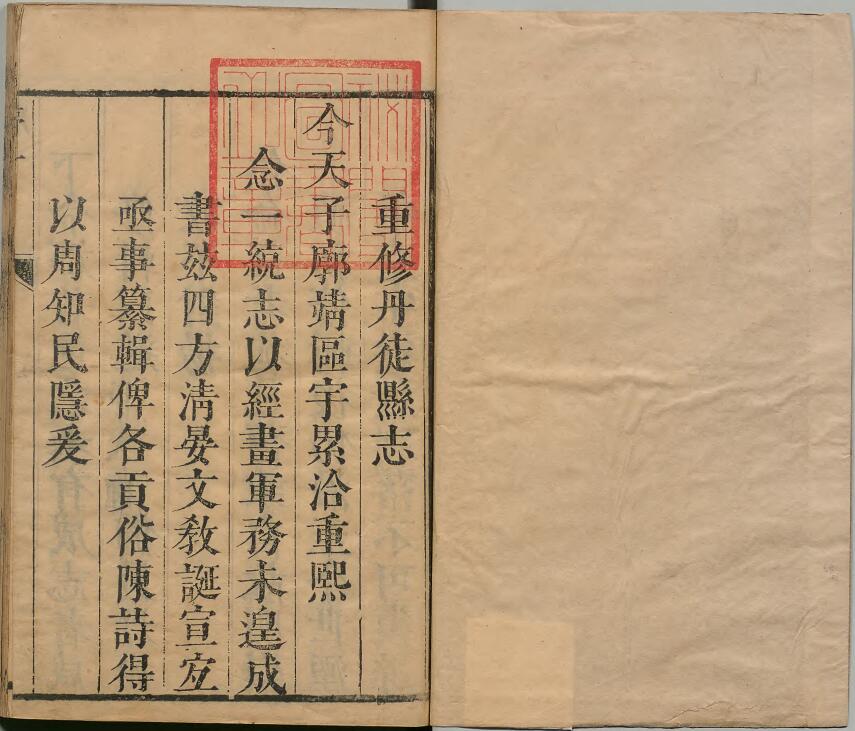 重修丹徒縣志
今天子廓靖區宇累洽重熙
念一統志以經畫軍務未遑成
書茲四方清晏文敎誕宣宐
亟事纂輯俾各貢俗陳詩得
以周知民隱爰